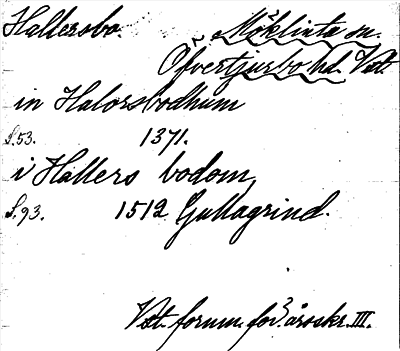 Hallersbo. Möklinta sn.
Öfvertjurbo hd. Vst.
in Halorsbodhum
S.53. 1371.
i Hallers bodom,
S.93. 1512 Gullagrind.
Vst. fornm. för. årsskr. III.